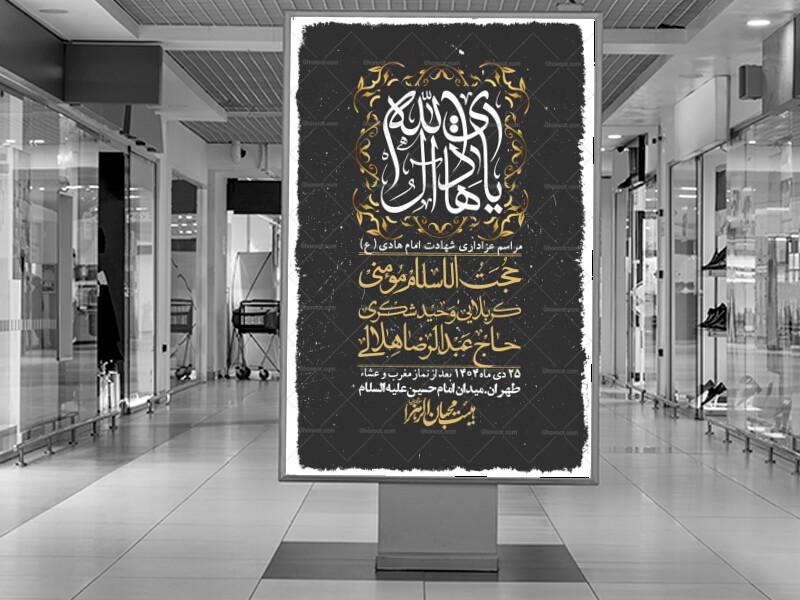 یا هادی آل الله
مراسم عزاداری شهادت امام هادی (ع)
حجت الاسلام مؤمنی
کربلایی وحید شکری
حاج عبدالرضا هلالی
۲۵ دی ماه ۱۴۰۴ بعد از نماز مغرب و عشاء
طهران، میدان امام حسین علیه السلام
هیئت محبان الزهرا